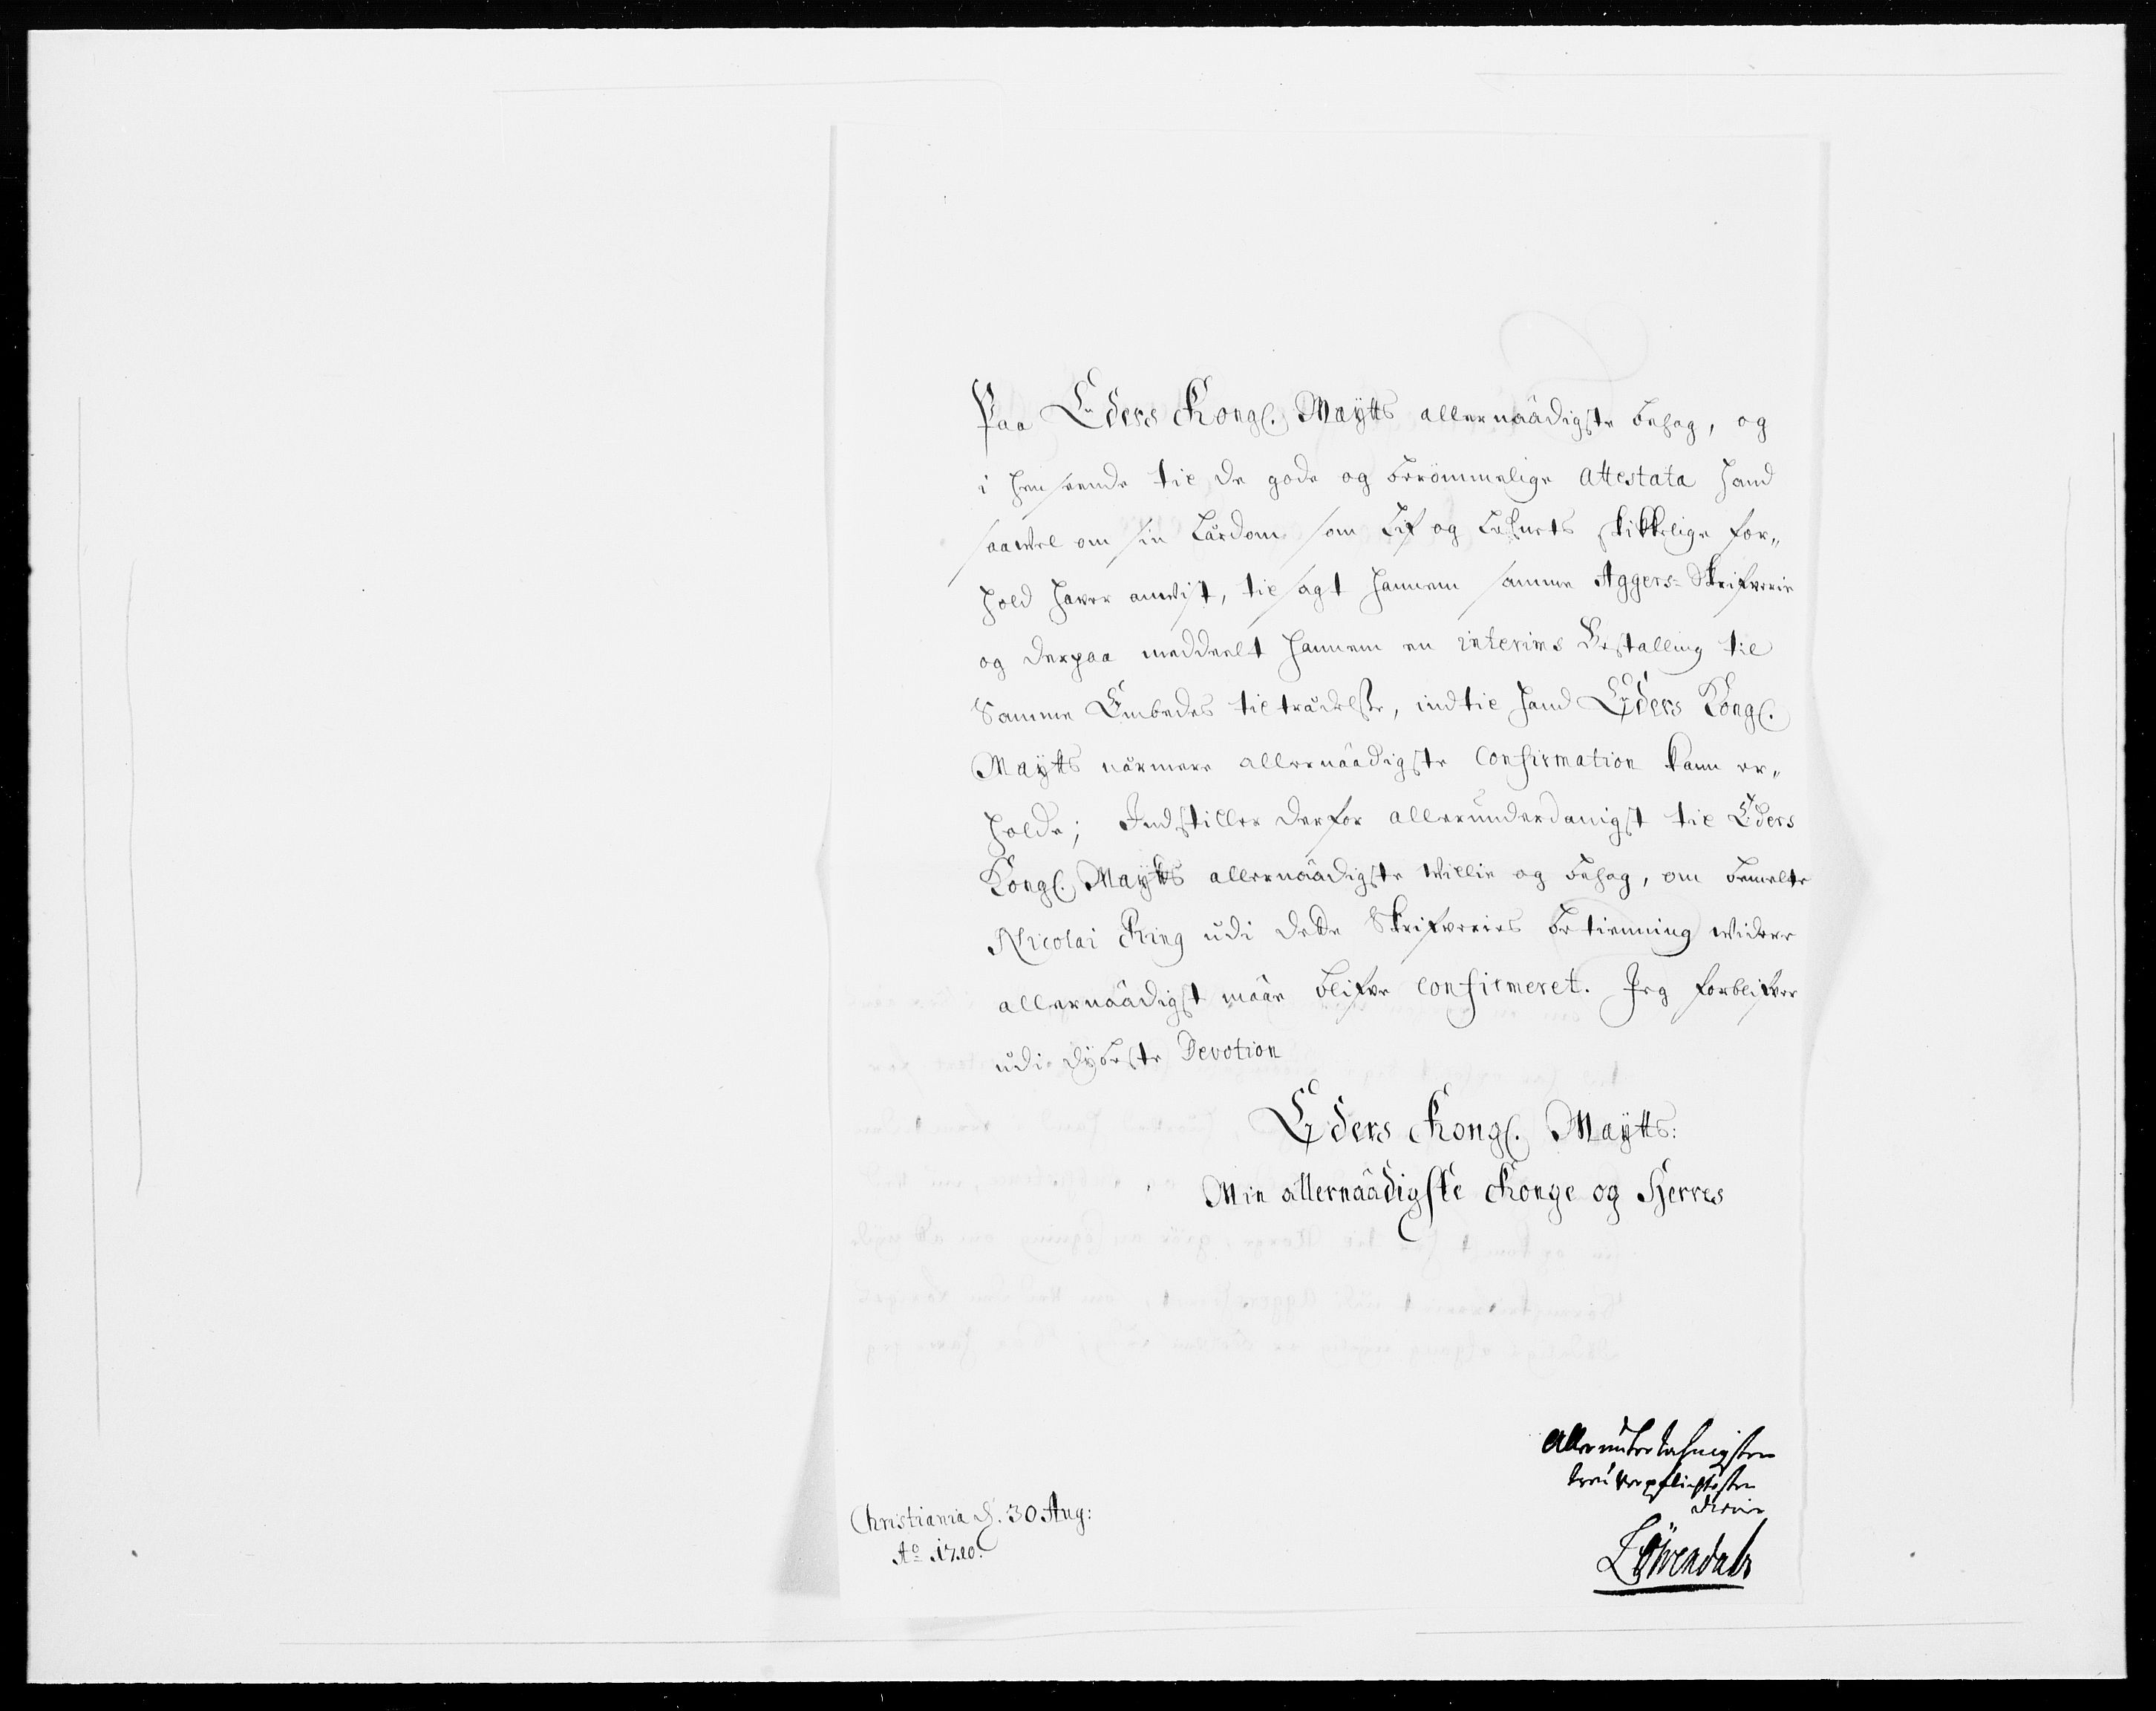 Paa Eders Kongl. Maÿtts allernaadigste behag, og
i henseende til de gode og berömmelige Attestata hand
saawel om sin Lärdom som Lif og Lefnets skikkelige for„
hold haver anvist, til sagt hannem samme Aggers=Skrifverie
og derpaa meddeelt hannem en interims Bestalling til
Samme Embedes tilträdelsse, indtil hand Eders Kongl.
Maÿtts närmere allernaadigste Confirmation kann er„
holde; Indstiller derfor allerunderdanigst til Eders
Kongl. Maÿtts allernaadigste Willie og behag, om bemelte
Nicolai Ring udi dette Skrifveries betienning widere
allernaadigst maae blifve confirmeret. Jeg forblifver
udi dÿbeste Devotion
Eders Kongl. Maÿtts:
Min allernaadigste Konge og Herres
Allerunterthänigster
treu Verpflichtester
diener
Löwendal
Christiania d. 30 Aug:
Ao 1710.